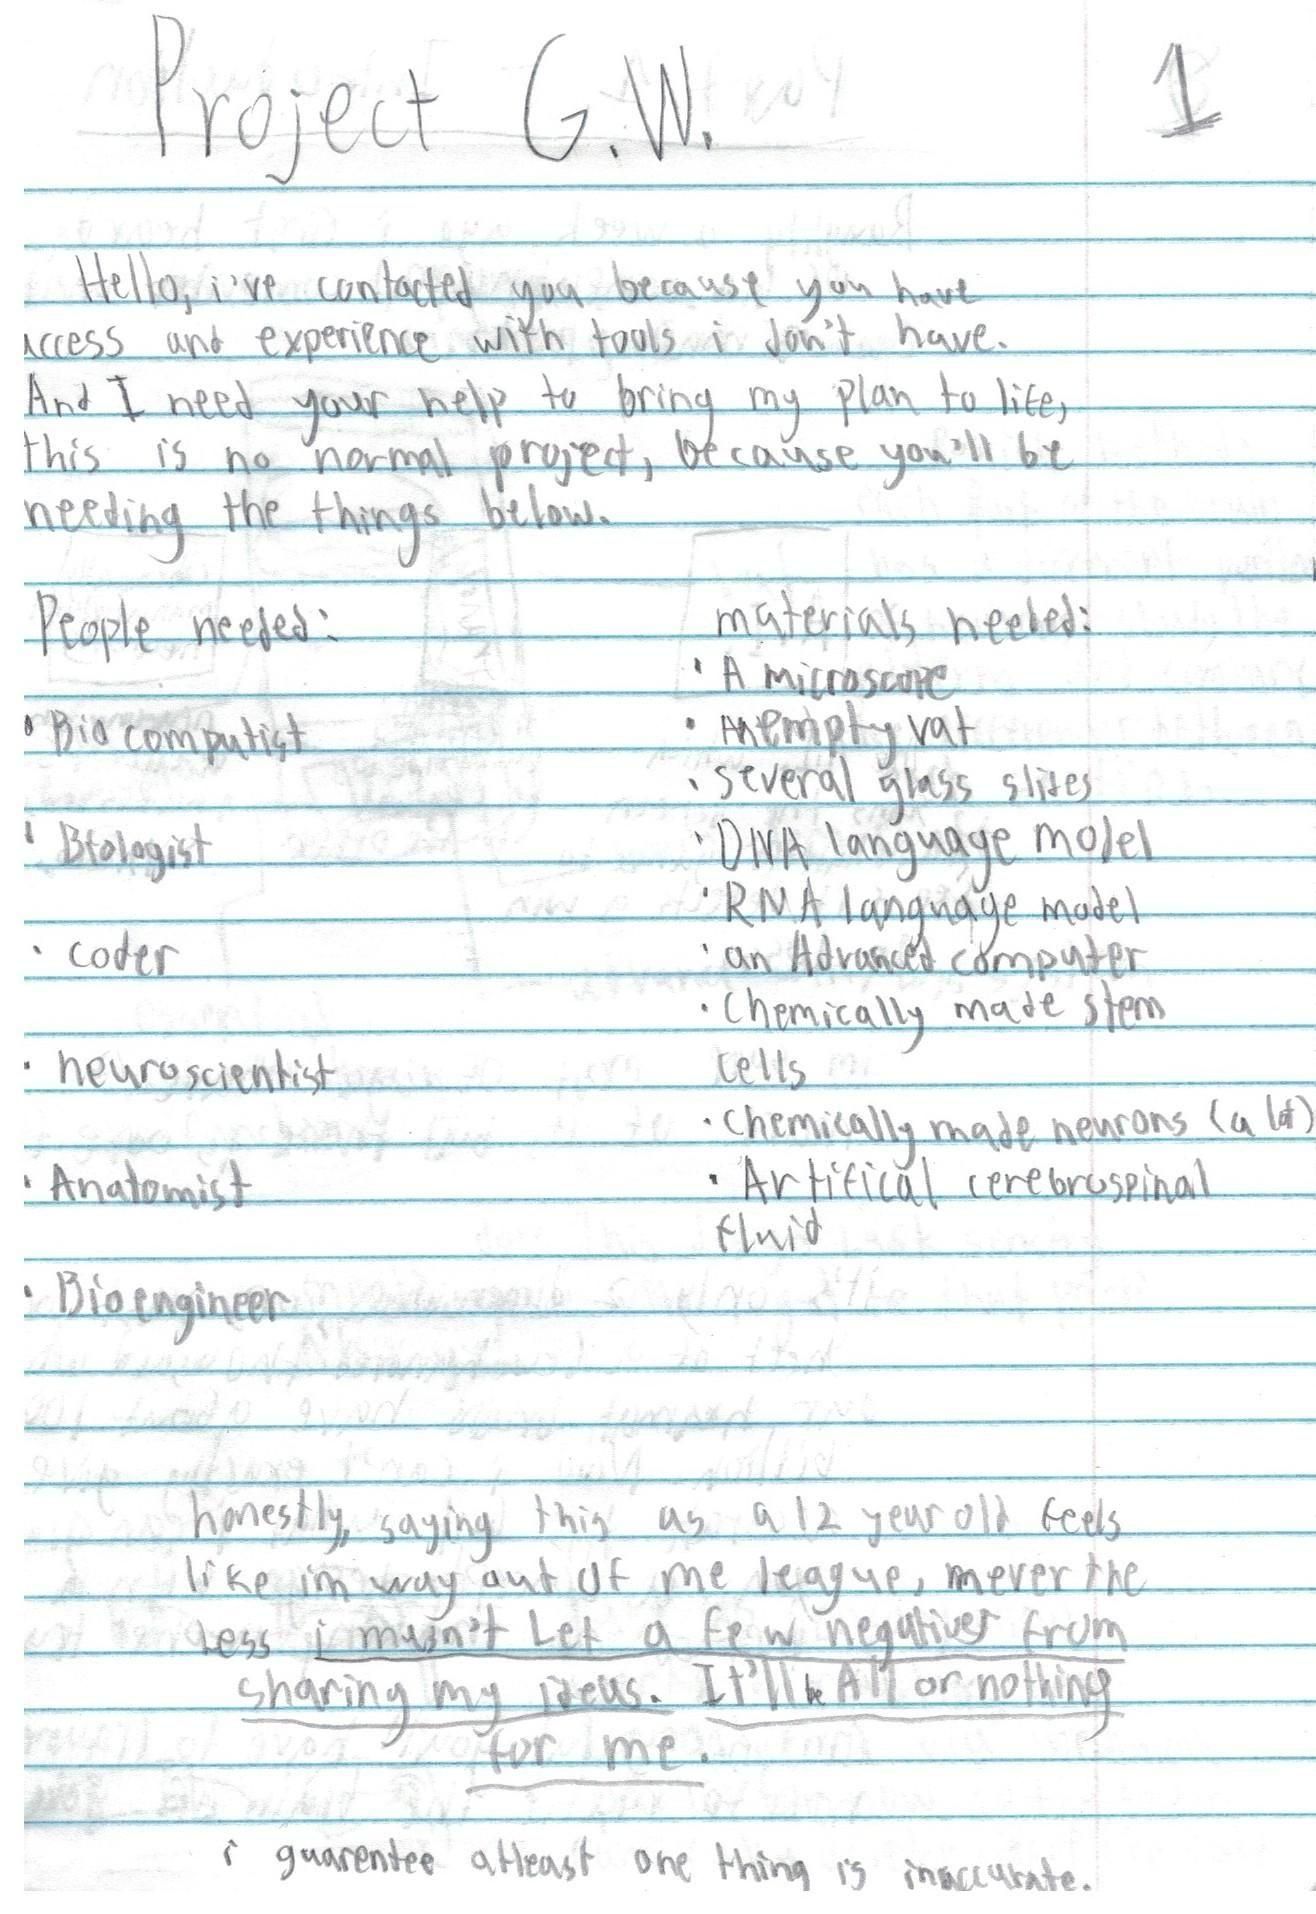 Project G.W.
1
Hello, i've contacted you because you have
access and experience with tools i don't have.
And I need your help to bring my plan to life,
this is no normal project, because you'll be
needing the things below.
People needed:
• Bio computist
• Biologist
• coder
• neuroscientist
• Anatomist
• Bioengineer
materials needed:
• A microscope
• An empty vat
• several glass slides
• DNA language model
• RNA language model
• an Advanced computer
• Chemically made stem
cells
• chemically made neurons (a lot)
• Artifical cerebrospinal
fluid
honestly, saying this as a 12 year old feels
like im way out of me league, never the
less i musn't Let a few negatives from
sharing my ideas. It'll be All or nothing
for me.
i guarentee atleast one thing is inaccurate.